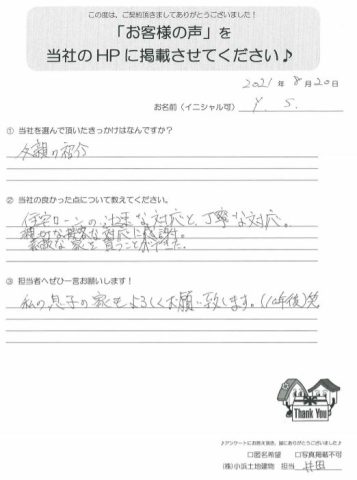 この度は、ご契約頂きましてありがとうございました！
「お客様の声」を
当社のHPに掲載させてください♪
2021年8月20日
お名前（イニシャル可） Y. S.
① 当社を選んで頂いたきっかけはなんですか？
② 当社の良かった点について教えてください。
住宅ローンの迅速な対応と丁寧な対応。
な対応に感謝。
素敵な家を買うことができた。
③ 担当者へぜひ一言お願いします！
私の息子の家もよろしくお願い致します。(10年後)笑
Thank You
♪アンケートにお答え頂き、誠にありがとうございました♪
□匿名希望 □写真掲載不可
(株)小浜土地建物 担当 井田